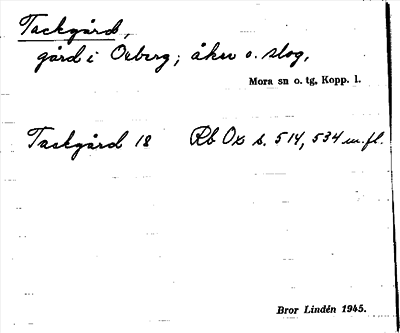 Tackgård,
gård i Oxberg; åker o. slog,
Mora sn o. tg, Kopp. l.
Taskgård 18 Rb Ox s. 514, 534 m.fl.
Bror Lindén 1945.